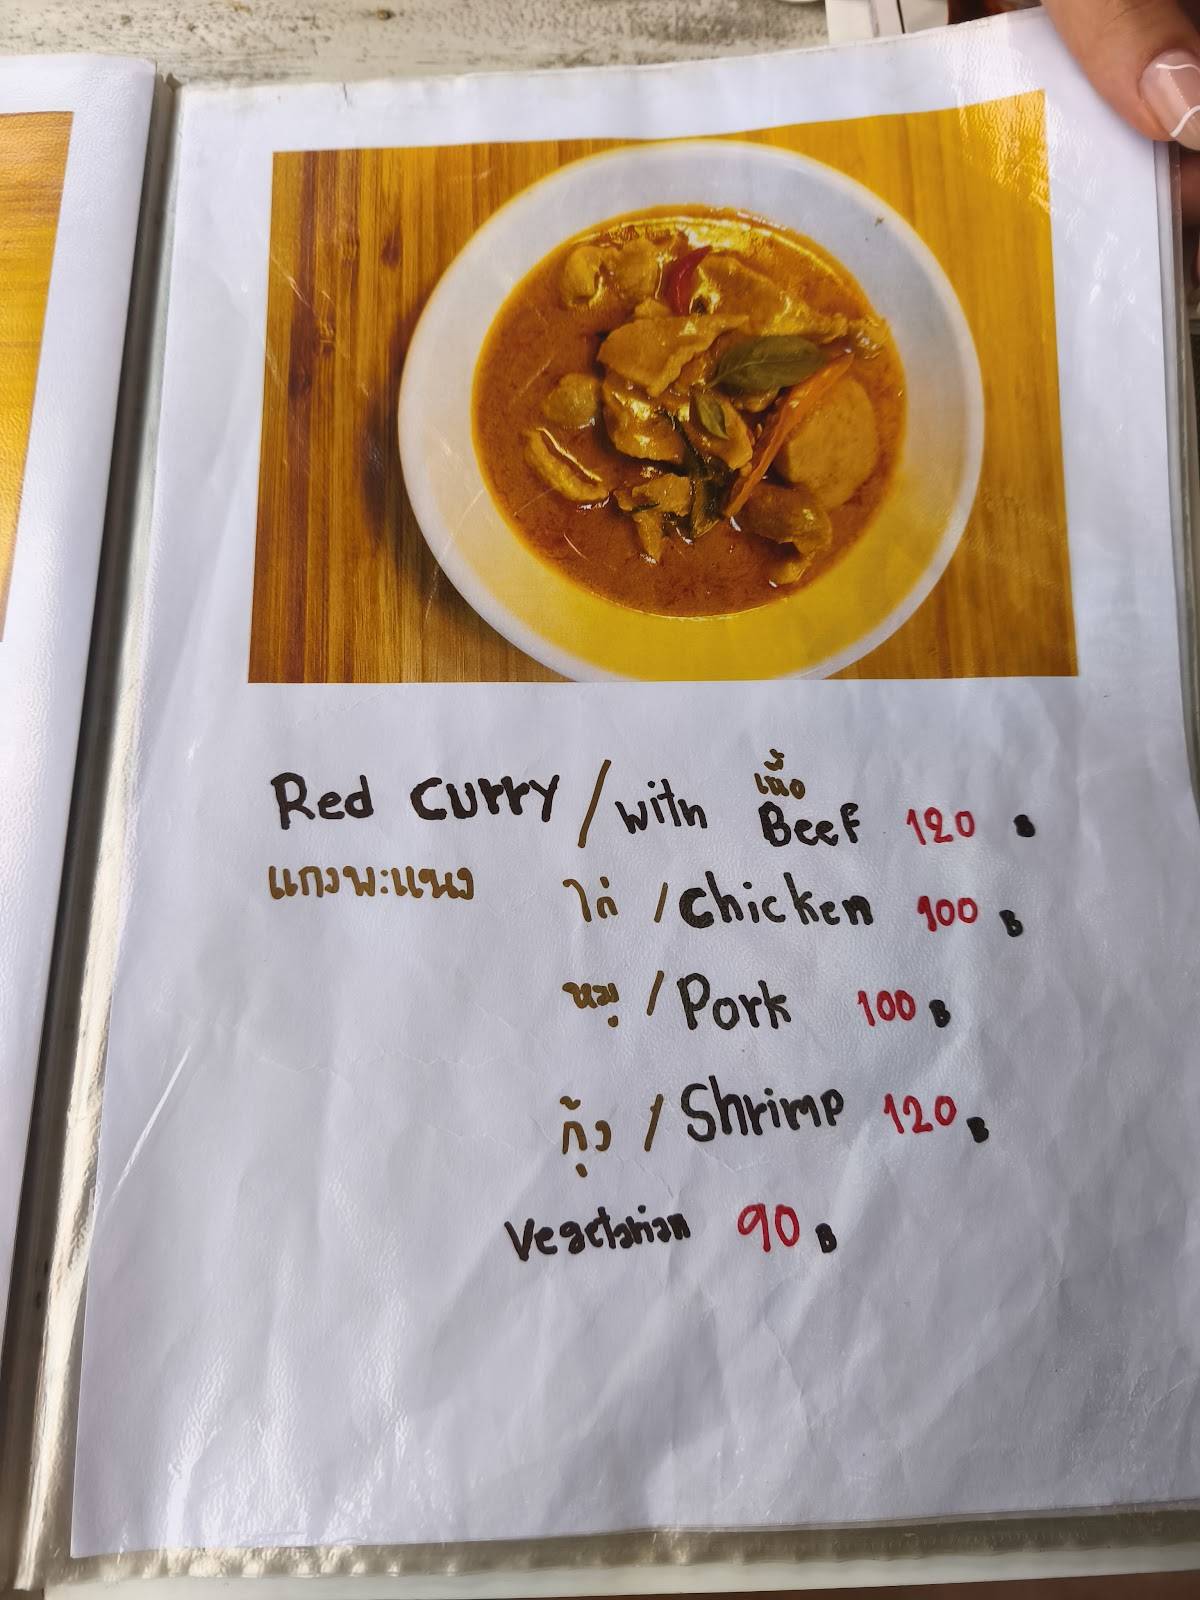 Red curry / with เนื้อ Beef 120 B
แกงพะแนง ไก่ / chicken 100 B
หมู / Pork 100 B
กุ้ง / Shrimp 120 B
Vegetarian 90 B